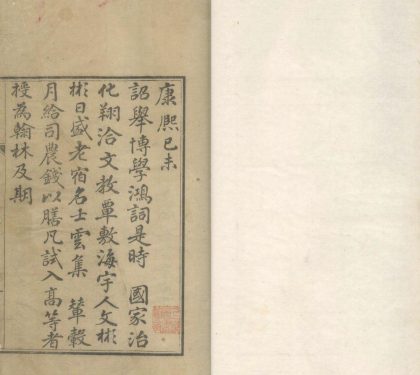 康熙己未
詔舉博學鴻詞是時　國家治
化翔洽文教覃敷海宇人文彬
彬日盛老宿名士雲集　輦轂
月給司農錢以膳凡試入高等者
授為翰林及期